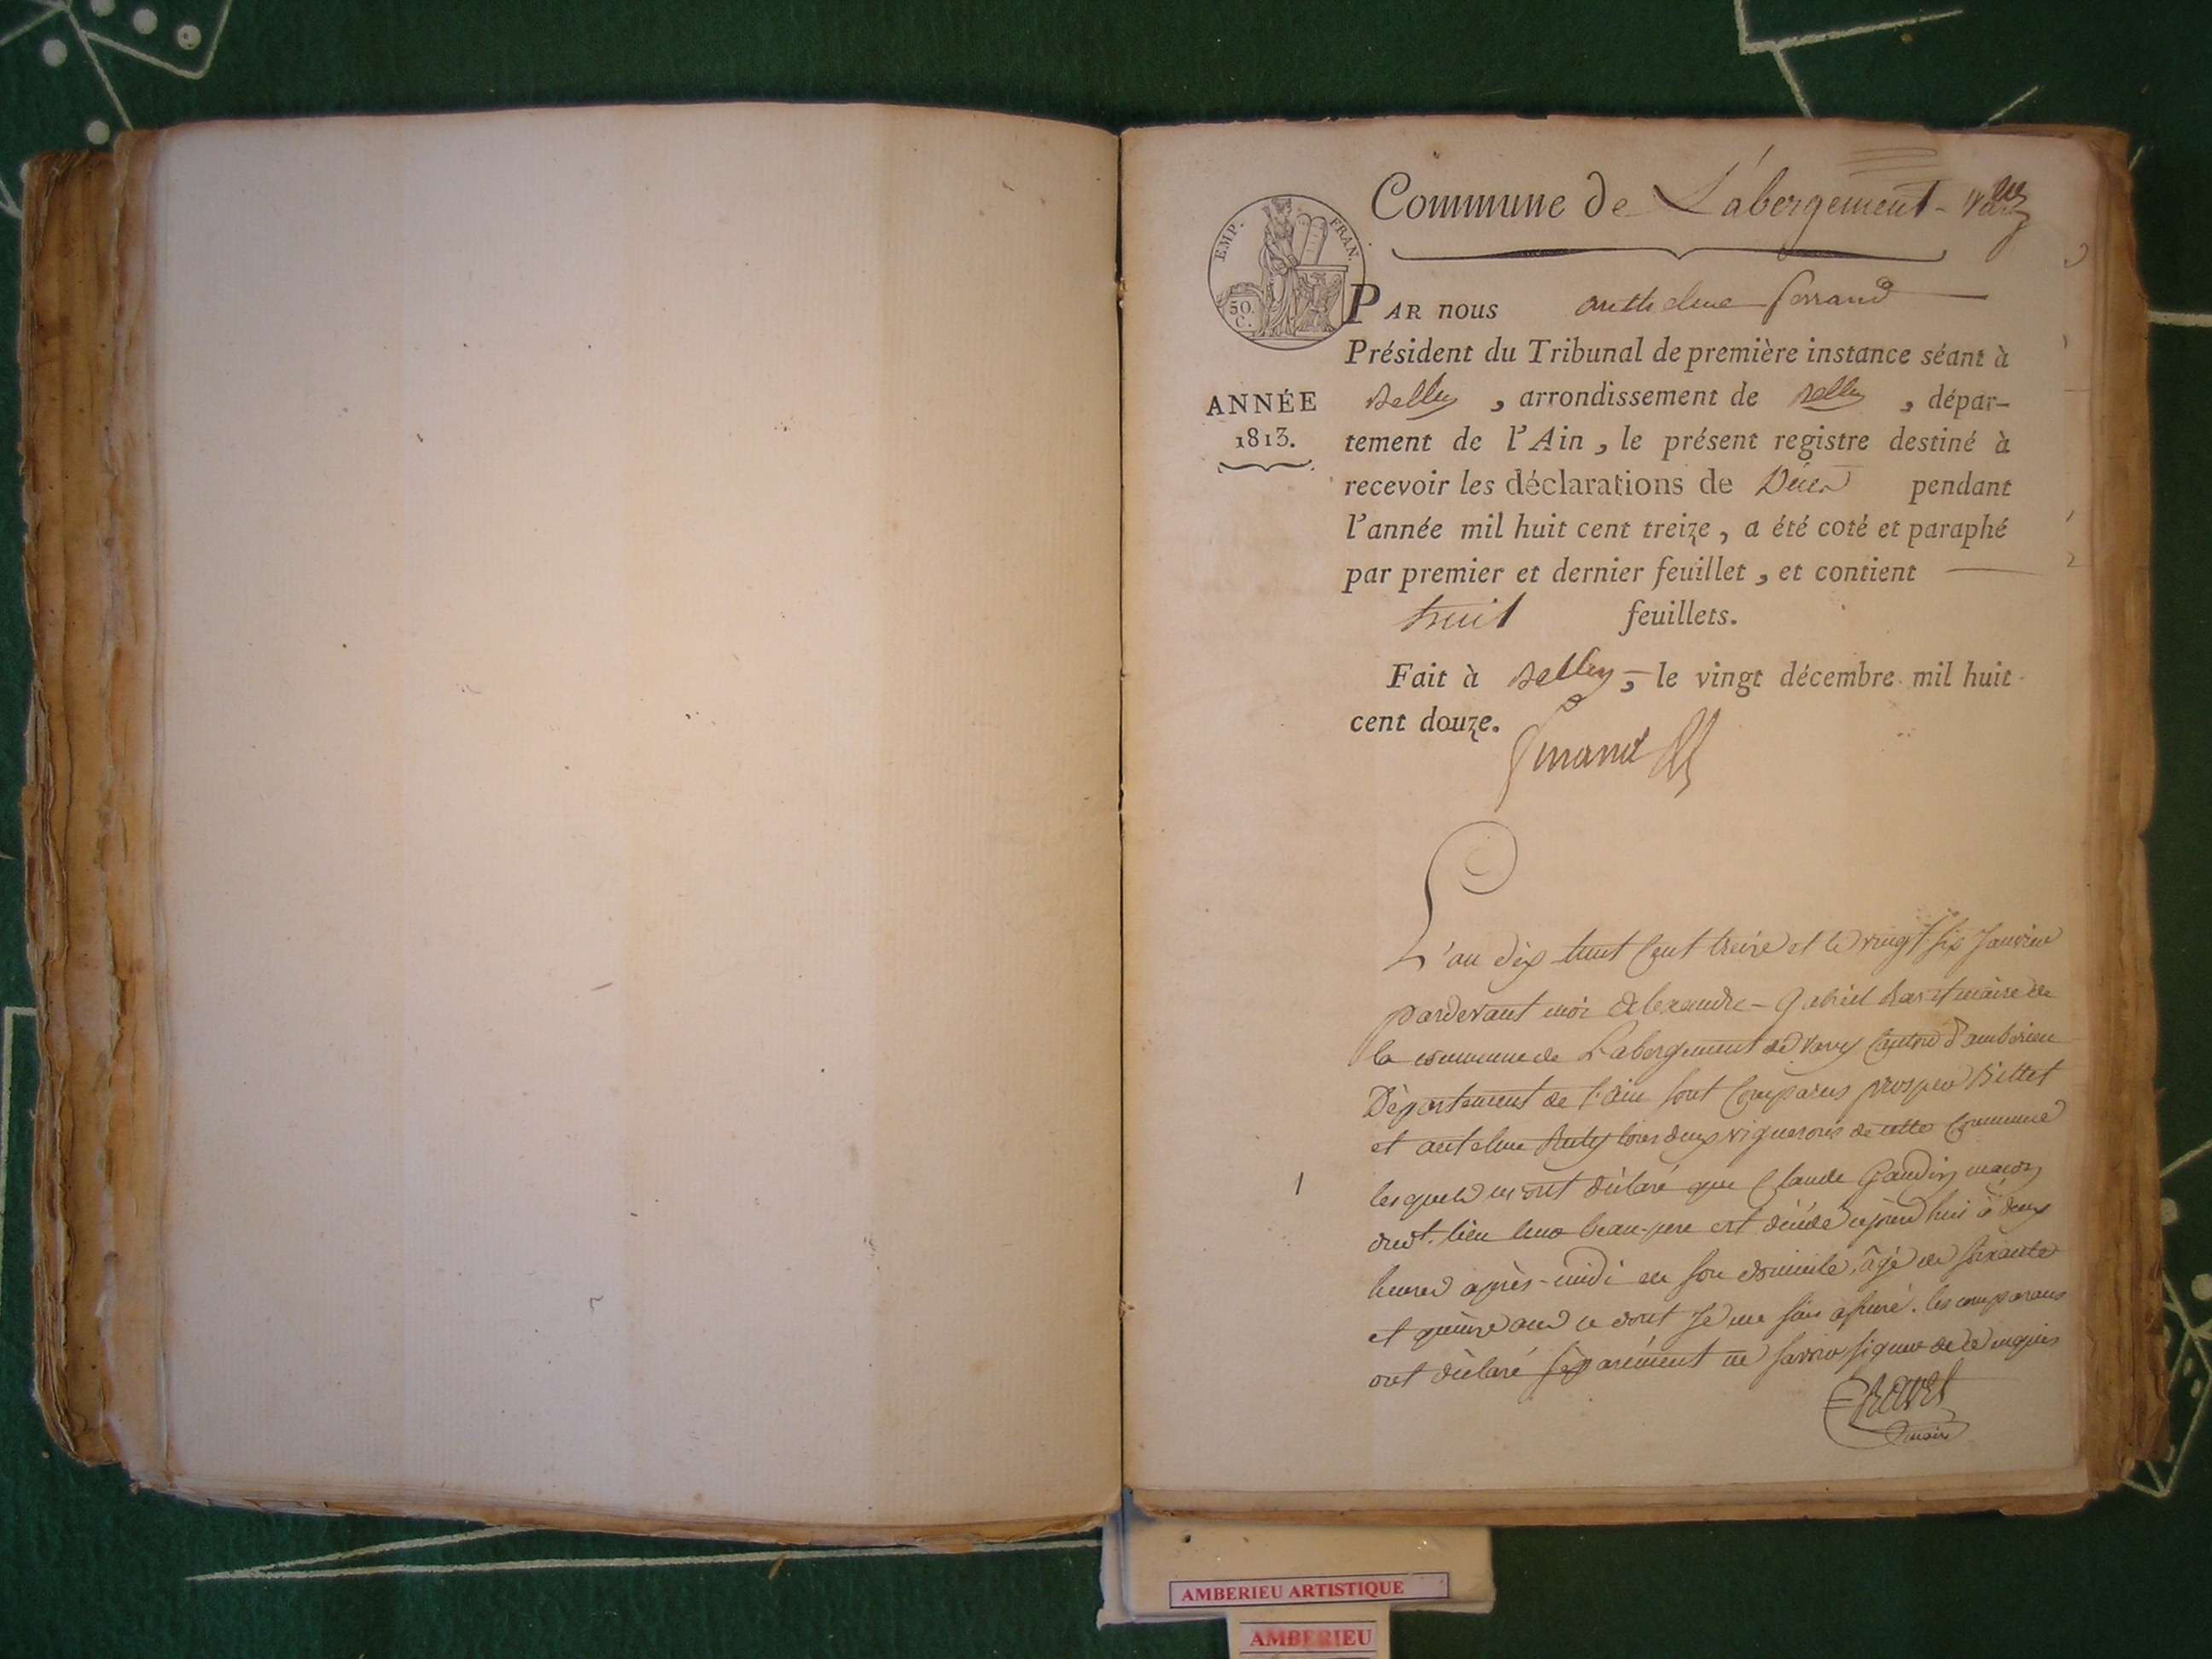 Commune de L'abergement-Varey
EMP. FRAN.
50. C.
PAR nous anthelme ferrand
Président du Tribunal de première instance séant à
ANNÉE
1813.
Belley, arrondissement de Belley, dépar-
tement de l'Ain, le présent registre destiné à
recevoir les déclarations de Décès pendant
l'année mil huit cent treize, a été coté et paraphé
par premier et dernier feuillet, et contient
huit feuillets.
Fait à Belley, le vingt décembre mil huit
cent douze.
ferrand
L'an dix huit cent treize et le vingt six Janvier
pardevant moi alexandre-gabriel maire de
la commune de Labergement de varey canton d'amberieu
Département de l'ain sont comparus prosper Billet
et antelme tous deux vignerons de cette commune
1
lesquels m'ont déclaré que Claude Gaudin maçon
dud.t lieu leur beau-pere est décédé cejourd'hui à deux
heures après-midi en son domicile, âgé de soixante
et quinze ans ce dont je me suis assuré. les comparans
ont déclaré séparément ne savoir signer de ce enquis
maire
AMBERIEU ARTISTIQUE
AMBERIEU